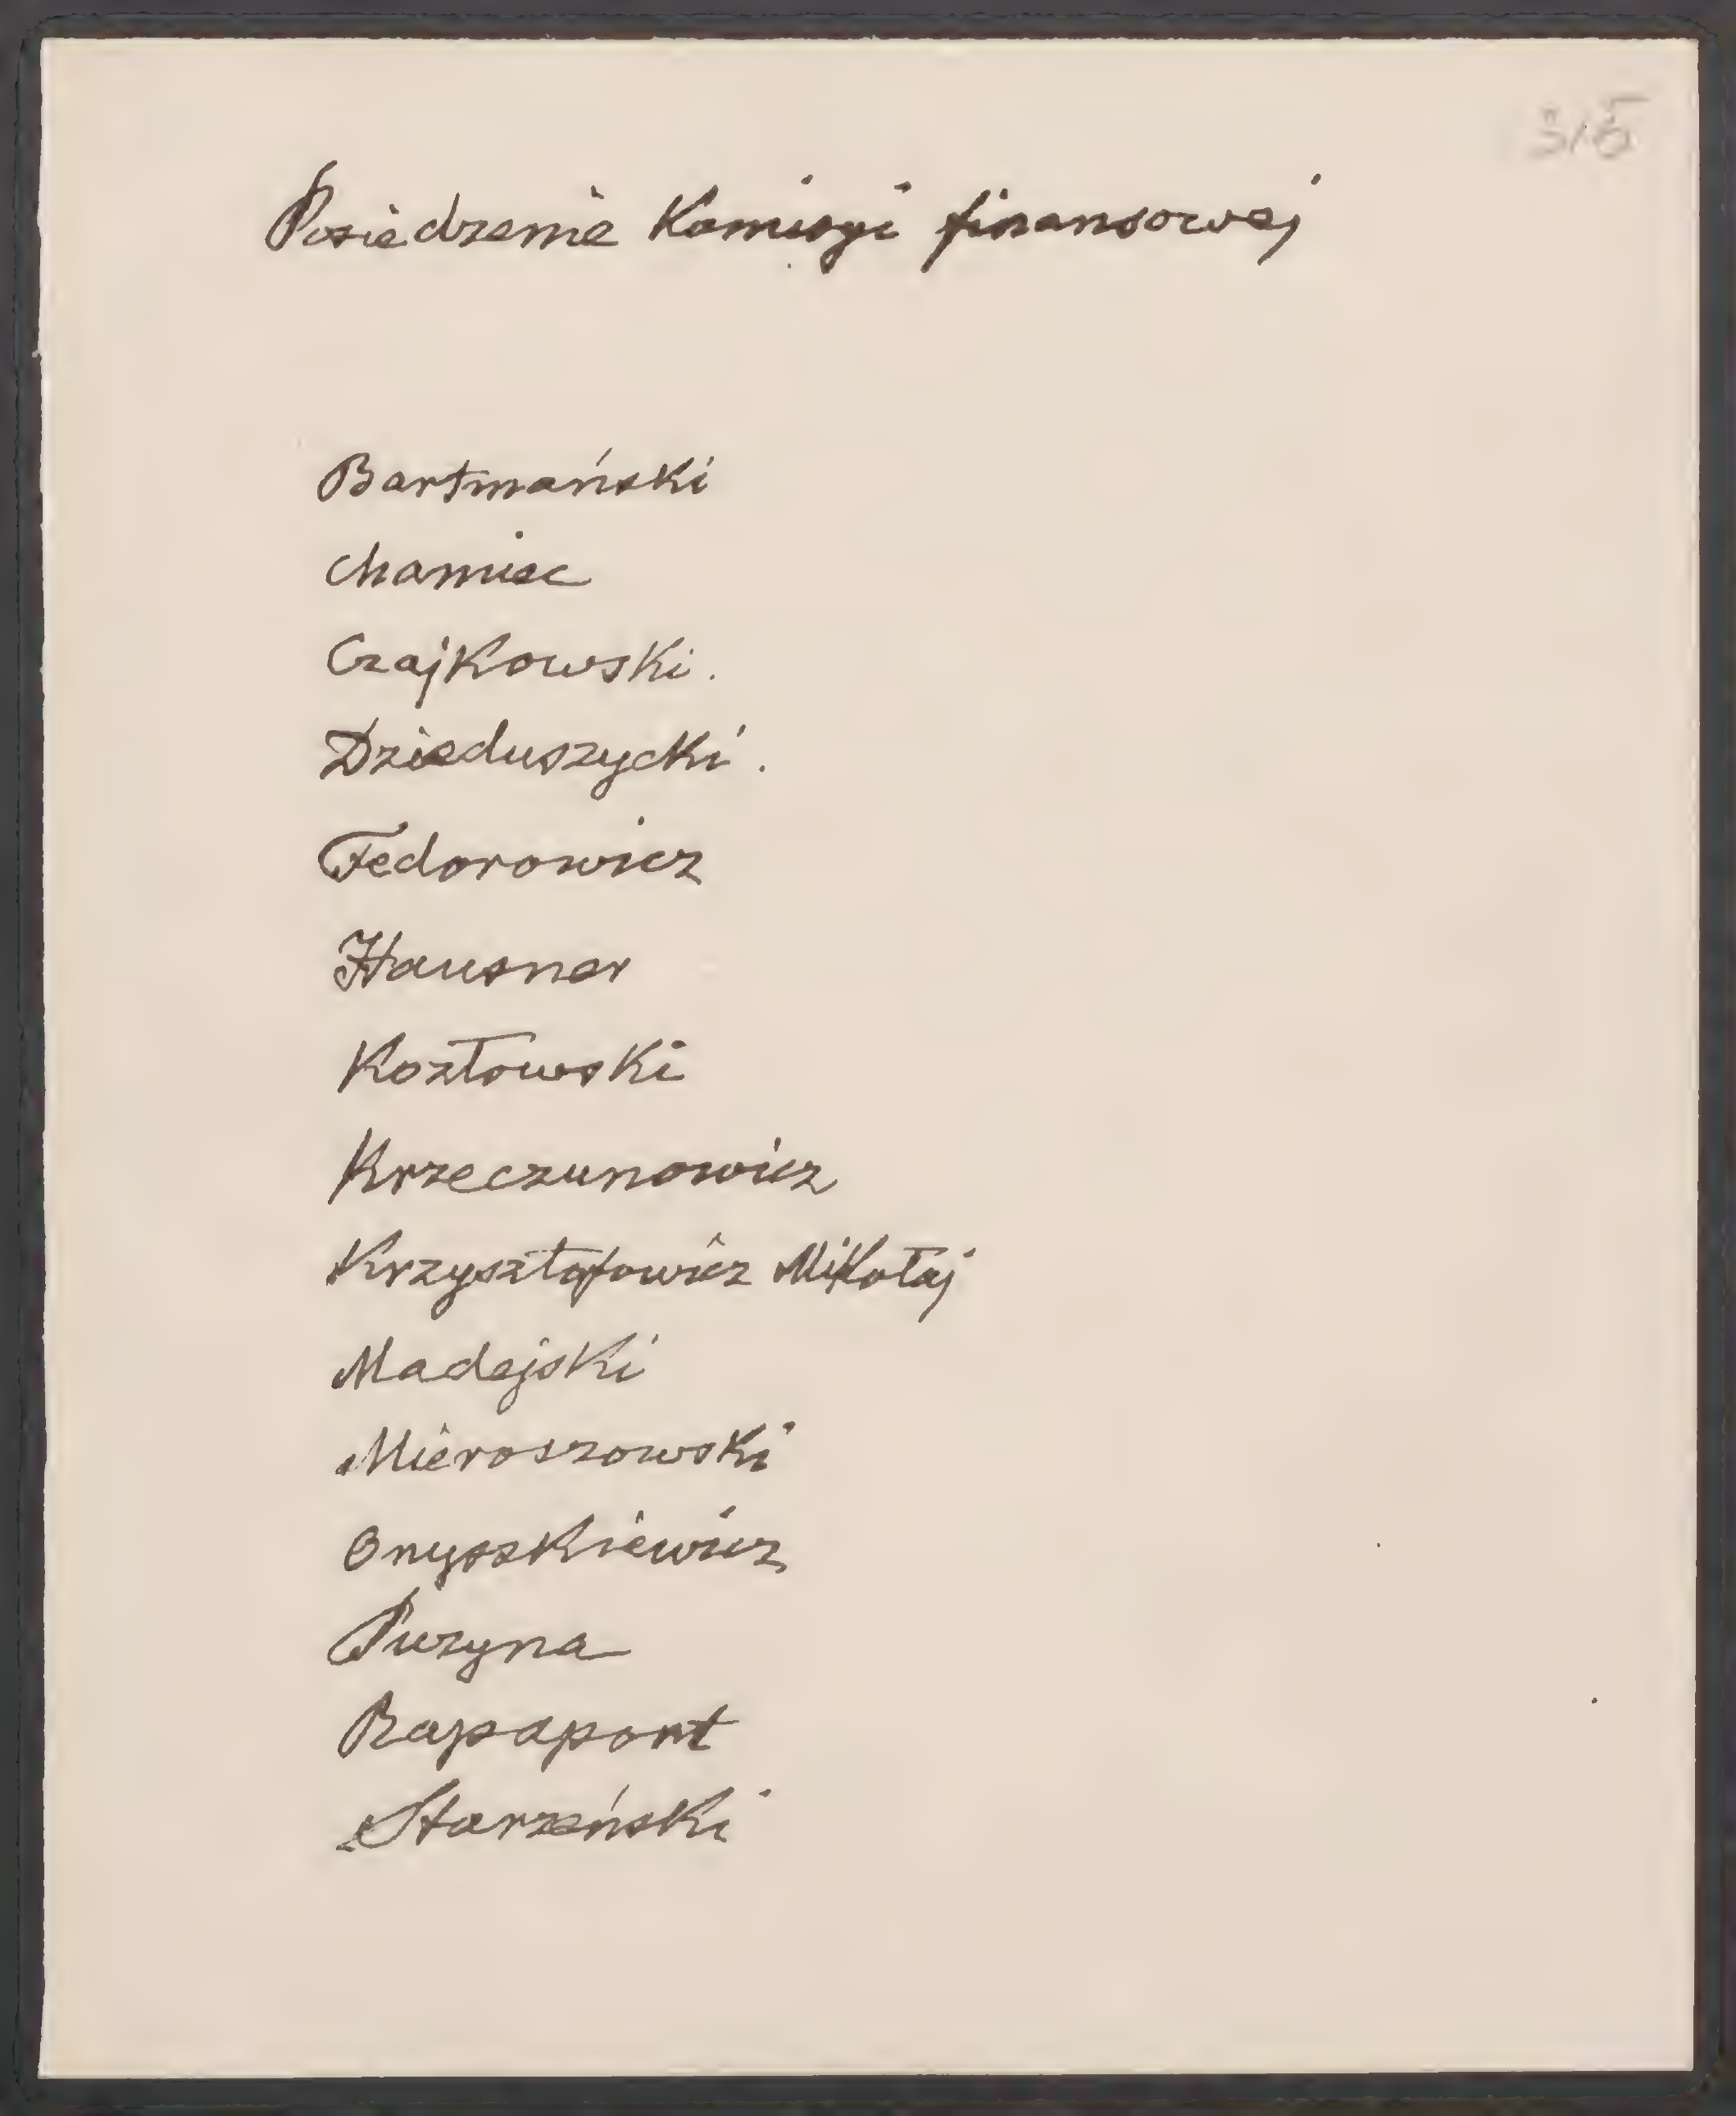 315
Posiedzenie Komisyi finansowej
Bartmański
Chamiec
Czajkowski.
Dzieduszycki.
Fedorowicz
Hausner
Kozłowski
Krzeczunowicz
Krzysztofowicz Mikołaj
Madejski
Mieroszowski
Onyszkiewicz
Puzyna
Rapaport
Starzeński